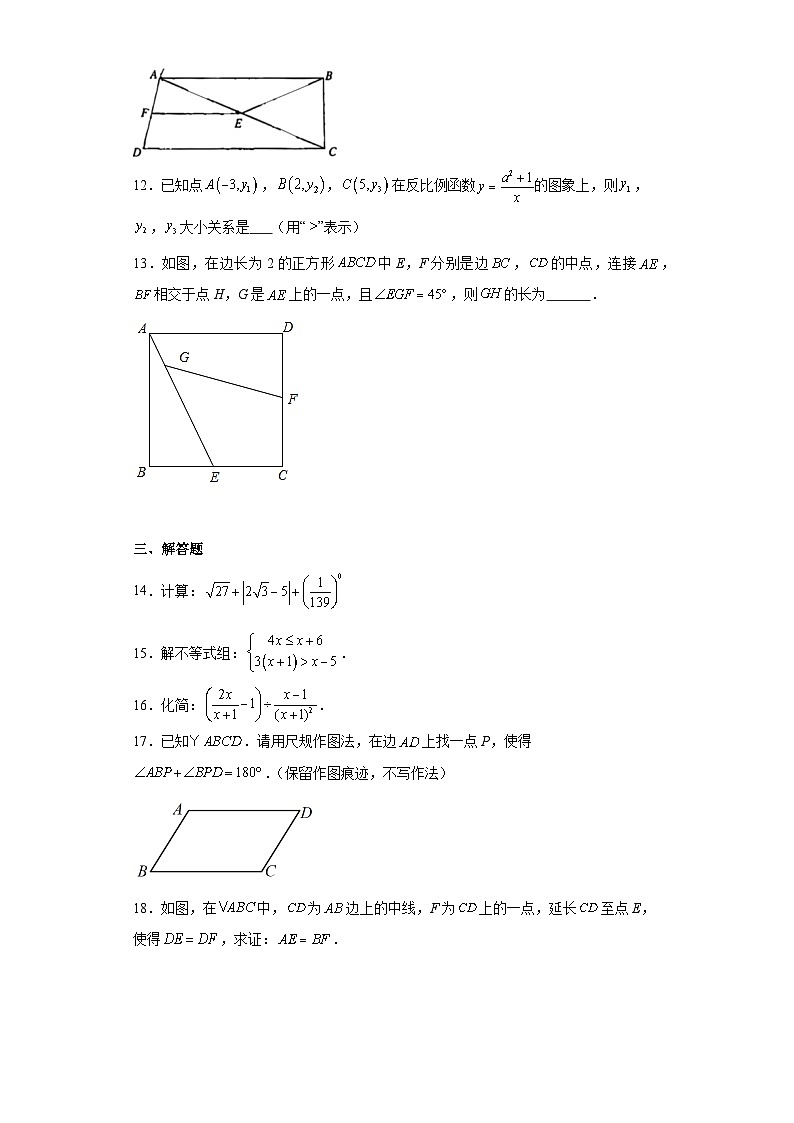 A B
F E
D C
12.已知点A(-3,y₁),B(2,y₂),C(5,y₃)在反比例函数y=(a²+1)/x的图象上,则y₁,
y₂,y₃大小关系是___(用“>”表示)
13.如图,在边长为2的正方形ABCD中E,F分别是边BC,CD的中点,连接AE,
BF相交于点H,G是AE上的一点,且∠EGF=45°,则GH的长为______.
A D
G
F
B E C
三、解答题
14.计算:√27+|2√3-5|+(1/139)⁰
15.解不等式组:{4x≤x+6
3(x+1)>x-5.
16.化简:(2x/(x+1)-1)÷(x-1)/(x+1)².
17.已知Y ABCD.请用尺规作图法,在边AD上找一点P,使得
∠ABP+∠BPD=180°.(保留作图痕迹,不写作法)
A D
B C
18.如图,在VABC中,CD为AB边上的中线,F为CD上的一点,延长CD至点E,
使得DE=DF,求证:AE=BF.